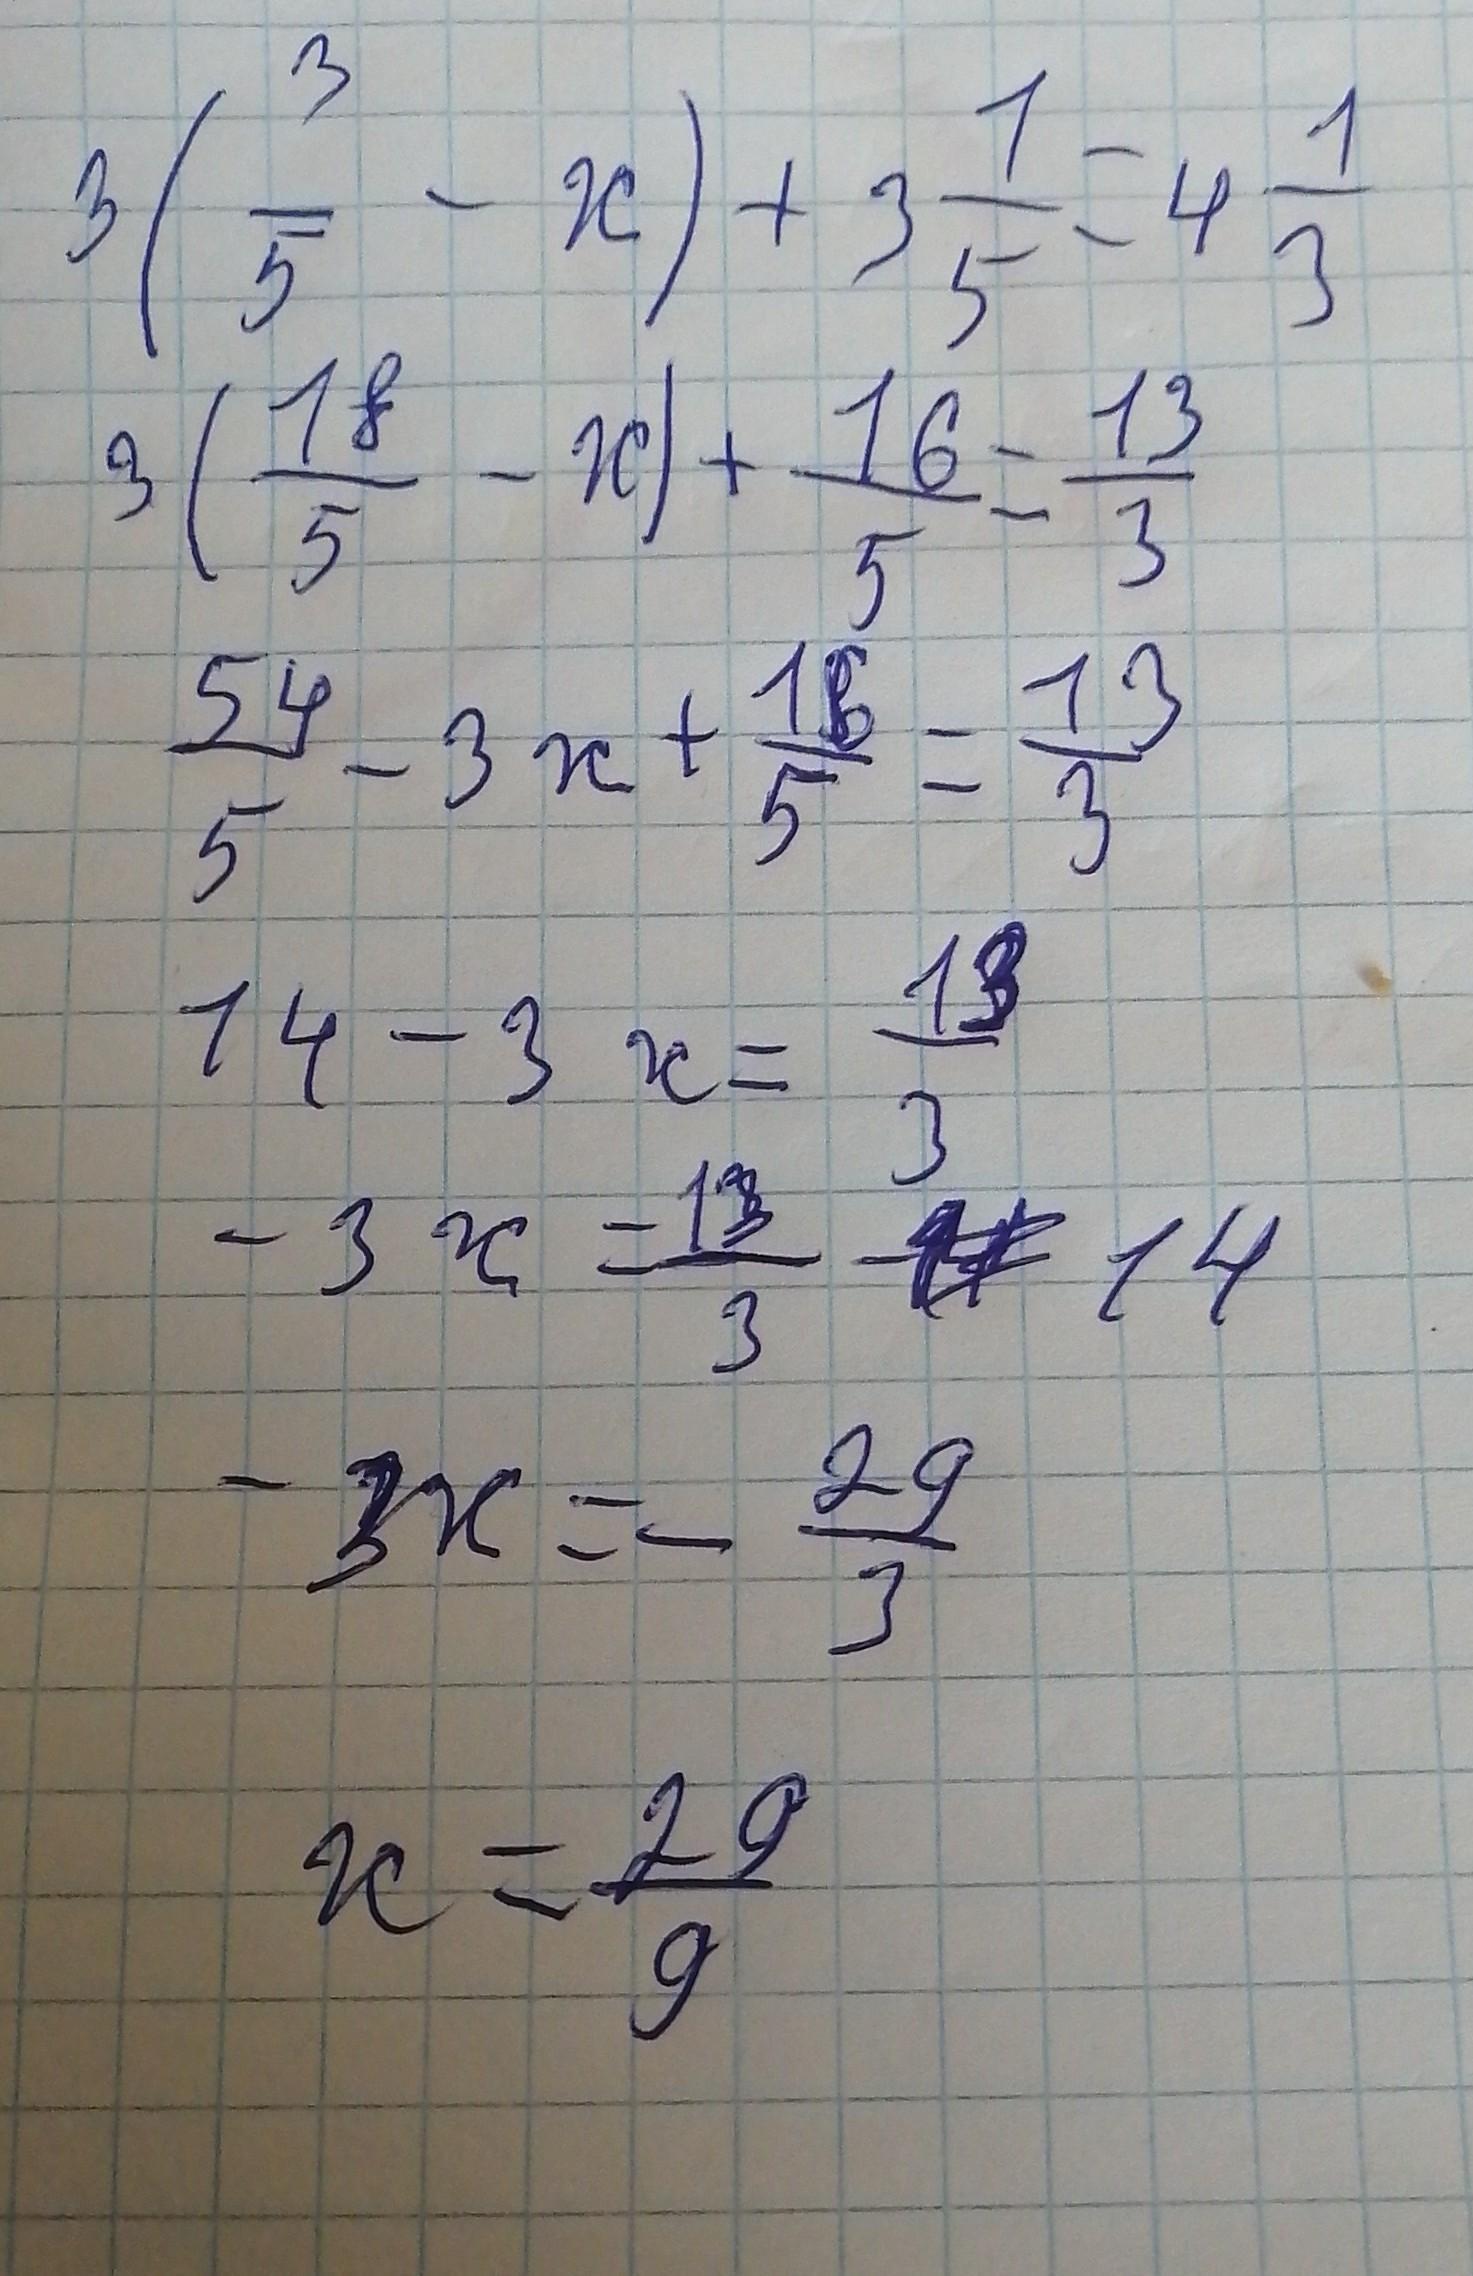 3(3/5 - x) + 3 1/5 = 4 1/3
3(18/5 - x) + 16/5 = 13/3
54/5 - 3x + 16/5 = 13/3
14 - 3x = 13/3
-3x = 13/3 - 14
-3x = - 29/3
x = 29/9